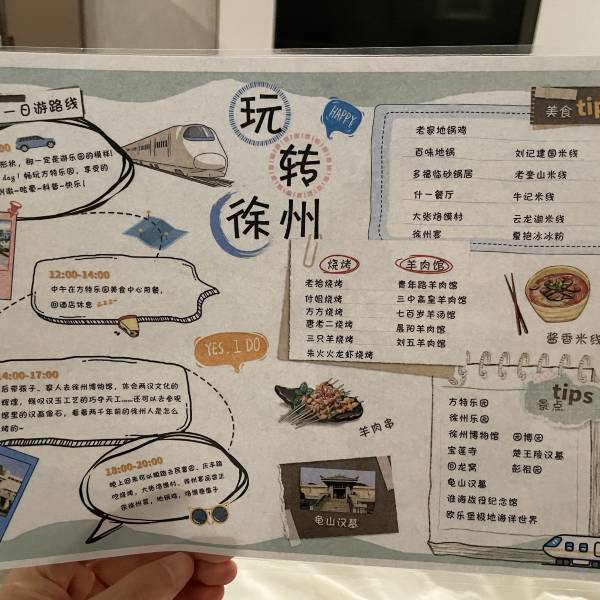 一日游路线
玩
转
徐州
HAPPY
美食 tip
老家地锅鸡
百味地锅 刘记建国米线
多福临砂锅居 老奎山米线
什一餐厅 牛记米线
大张烙馍村 云龙湖米线
徐州宴 爱艳冰冰粉
形状，那一定是游乐园的模样！
day! 畅玩方特乐园，享受的
12:00-14:00
中午在方特乐园美食中心用餐，
回酒店休息 zzz~
烧烤 羊肉馆
老拾烧烤 青年路羊肉馆
付姐烧烤 三中高皇羊肉馆
方方烧烤 七百岁羊汤馆
唐老二烧烤 晨阳羊肉馆
三只羊烧烤 刘五羊肉馆
朱火火龙虾烧烤
酱香米线
YES. I DO
14:00-17:00
后带孩子、家人去徐州博物馆，体会两汉文化的
辉煌，银缕玉工艺的巧夺天工……还可以去参观
馆里的汉画像石，看看两千年前的徐州人是怎么
烤的~
18:00-20:00
晚上回来可以顺路去民富园、庆丰路
吃烧烤，大张烙馍村、徐州宴品尝正
宗徐州菜，地锅鸡，烙馍卷馓子
羊肉串
龟山汉墓
tips
景点
方特乐园
徐州乐园
徐州博物馆 园博园
宝莲寺 楚王陵汉墓
回龙窝 彭祖园
龟山汉墓
淮海战役纪念馆
欧乐堡极地海洋世界